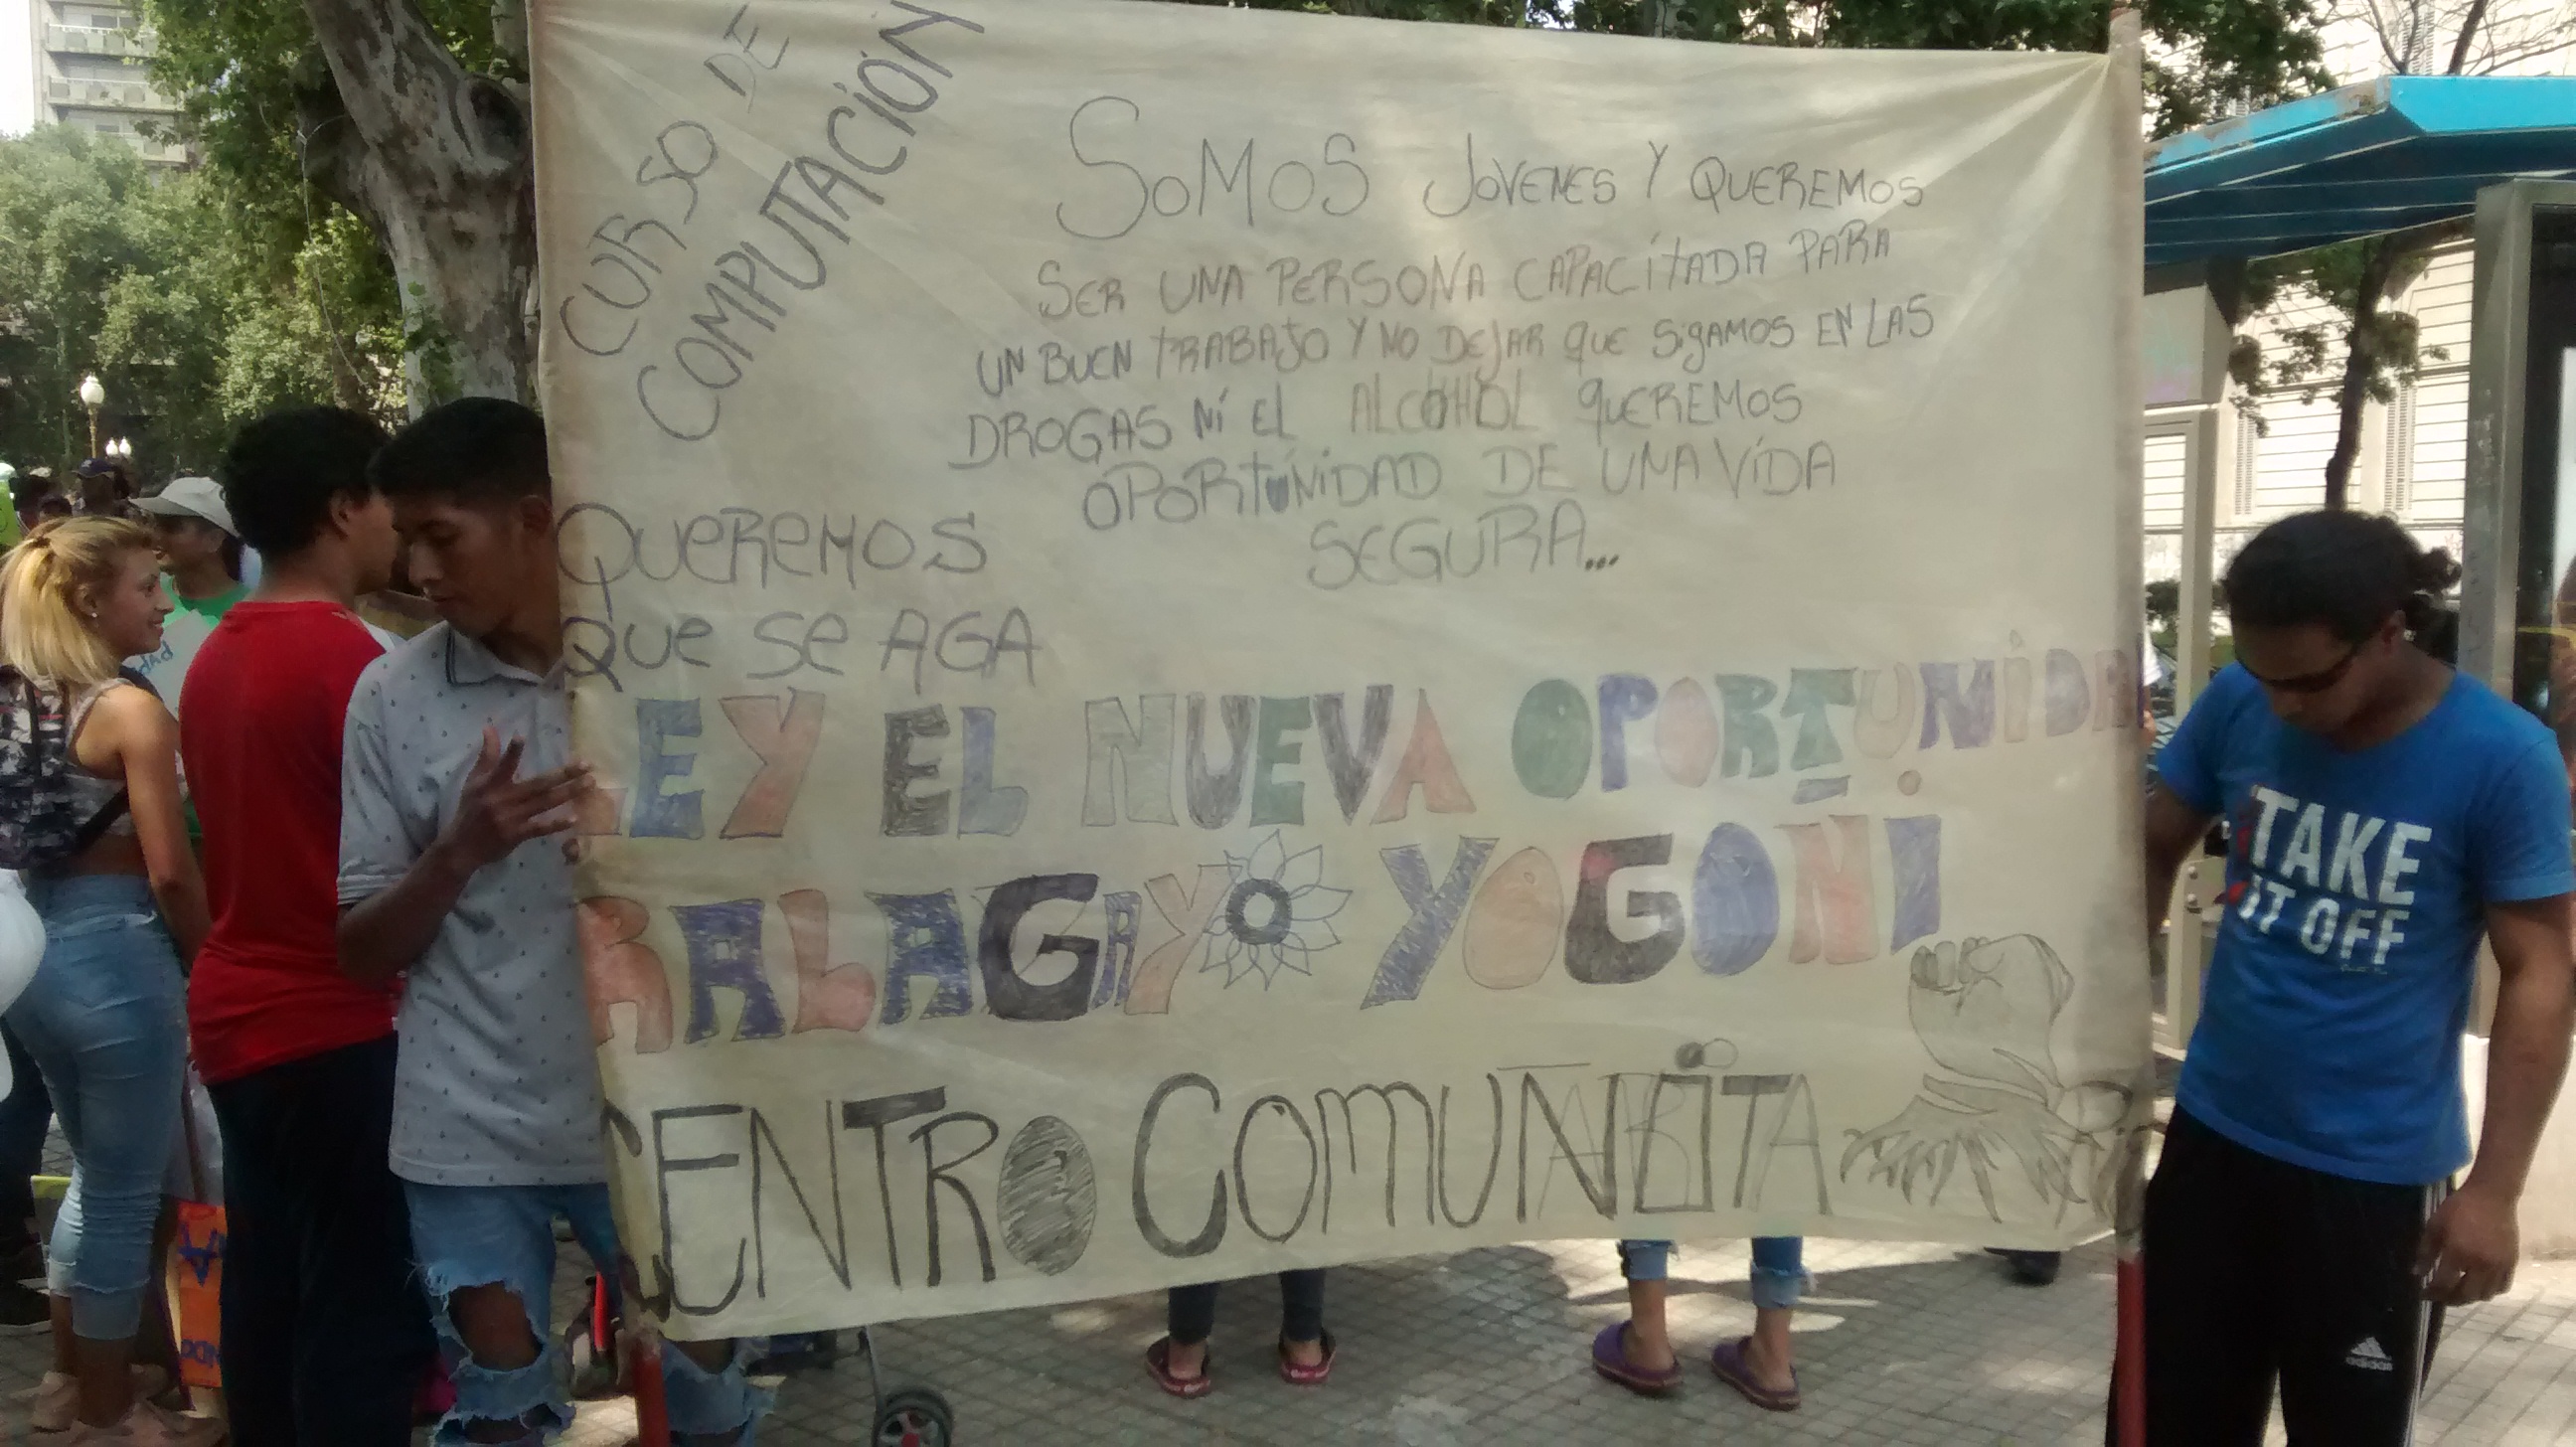 CURSO DE
COMPUTACIÓN
SOMOS JOVENES Y QUEREMOS
SER UNA PERSONA CAPACITADA PARA
UN BUEN TRABAJO Y NO DEJAR QUE SIGAMOS EN LAS
DROGAS NI EL ALCOHOL QUEREMOS
OPORTUNIDAD DE UNA VIDA
SEGURA...
QUEREMOS
QUE SE AGA
LEY EL NUEVA OPORTUNIDA
QALAGAYO YOGOÑI
CENTRO COMUNITA
TAKE
IT OFF
adidas